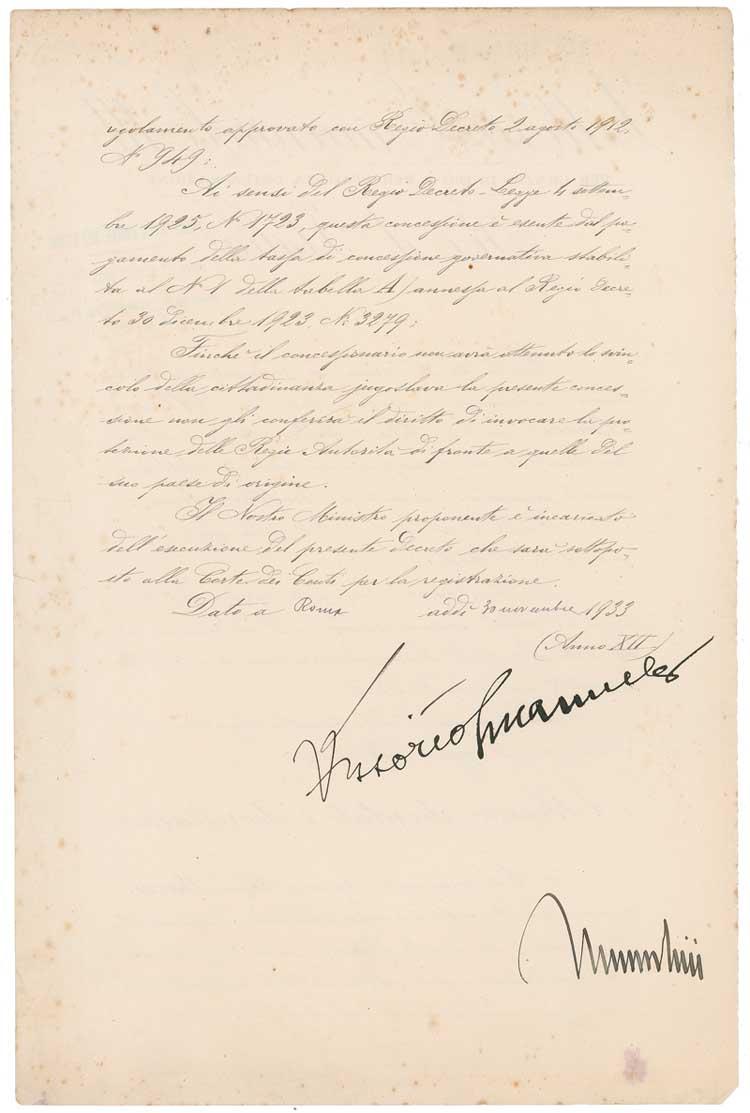 regolamento approvato con Regio Decreto 2 agosto 1912,
N° 949;
Ai sensi del Regio Decreto-Legge 4 settem=
bre 1925, N 1723, questa concessione è esente dal pa=
gamento della tassa di concessione governativa stabili=
ta al N 1 della tabella A) annessa al Regio Decre=
to 30 Dicembre 1923, N. 3279;
Finchè il concessionario non avrà ottenuto lo svin=
colo della cittadinanza jugoslava la presente conces=
sione non gli conferirà il diritto di invocare la pro=
tezione delle Regie Autorità di fronte a quelle del
suo paese di origine.
Il Nostro Ministro proponente è incaricato
dell'esecuzione del presente decreto che sarà sottopo=
sto alla Corte dei Conti per la registrazione.
Dato a Roma addì 30 novembre 1933
(Anno XII)
Vittorio Emanuele
Mussolini